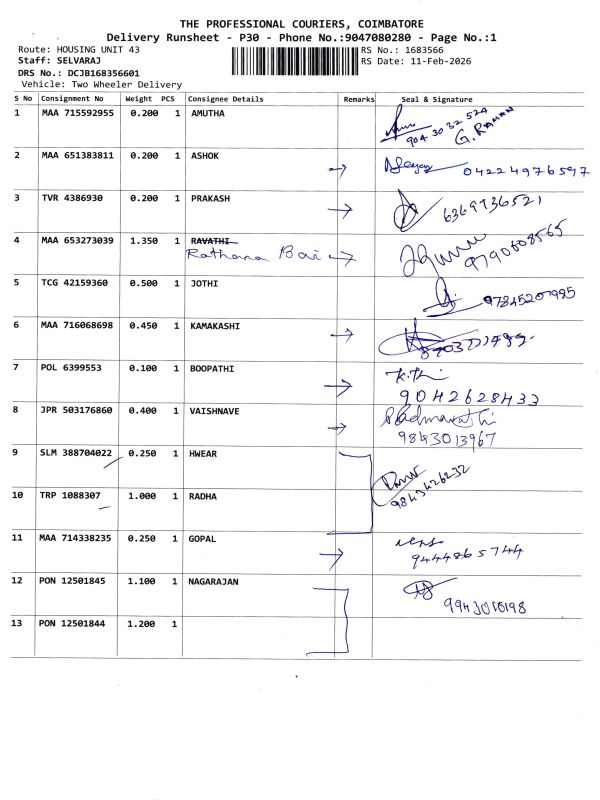 THE PROFESSIONAL COURIERS, COIMBATORE
Delivery Runsheet - P30 - Phone No.:9047080280 - Page No.:1
Route: HOUSING UNIT 43
RS No.: 1683566
Staff: SELVARAJ
RS Date: 11-Feb-2026
DRS No.: DCJB168356601
Vehicle: Two Wheeler Delivery
S No Consignment No Weight PCS Consignee Details Remarks Seal & Signature
1 MAA 715592955 0.200 1 AMUTHA
904 30 32 524
G. RAMAN
2 MAA 651383811 0.200 1 ASHOK → 04224976597
3 TVR 4386930 0.200 1 PRAKASH → 6369736521
4 MAA 653273039 1.350 1 RAVATHI
Rathana Bai → 9790608565
5 TCG 42159360 0.500 1 JOTHI 97845207985
6 MAA 716068698 0.450 1 KAMAKASHI →
7 POL 6399553 0.100 1 BOOPATHI
→ 9042628433
8 JPR 503176860 0.400 1 VAISHNAVE →
9843013967
9 SLM 388704022 0.250 1 HWEAR
9843426232
10 TRP 1088307 1.000 1 RADHA
11 MAA 714338235 0.250 1 GOPAL
→ 9444865744
12 PON 12501845 1.100 1 NAGARAJAN
9943010198
13 PON 12501844 1.200 1